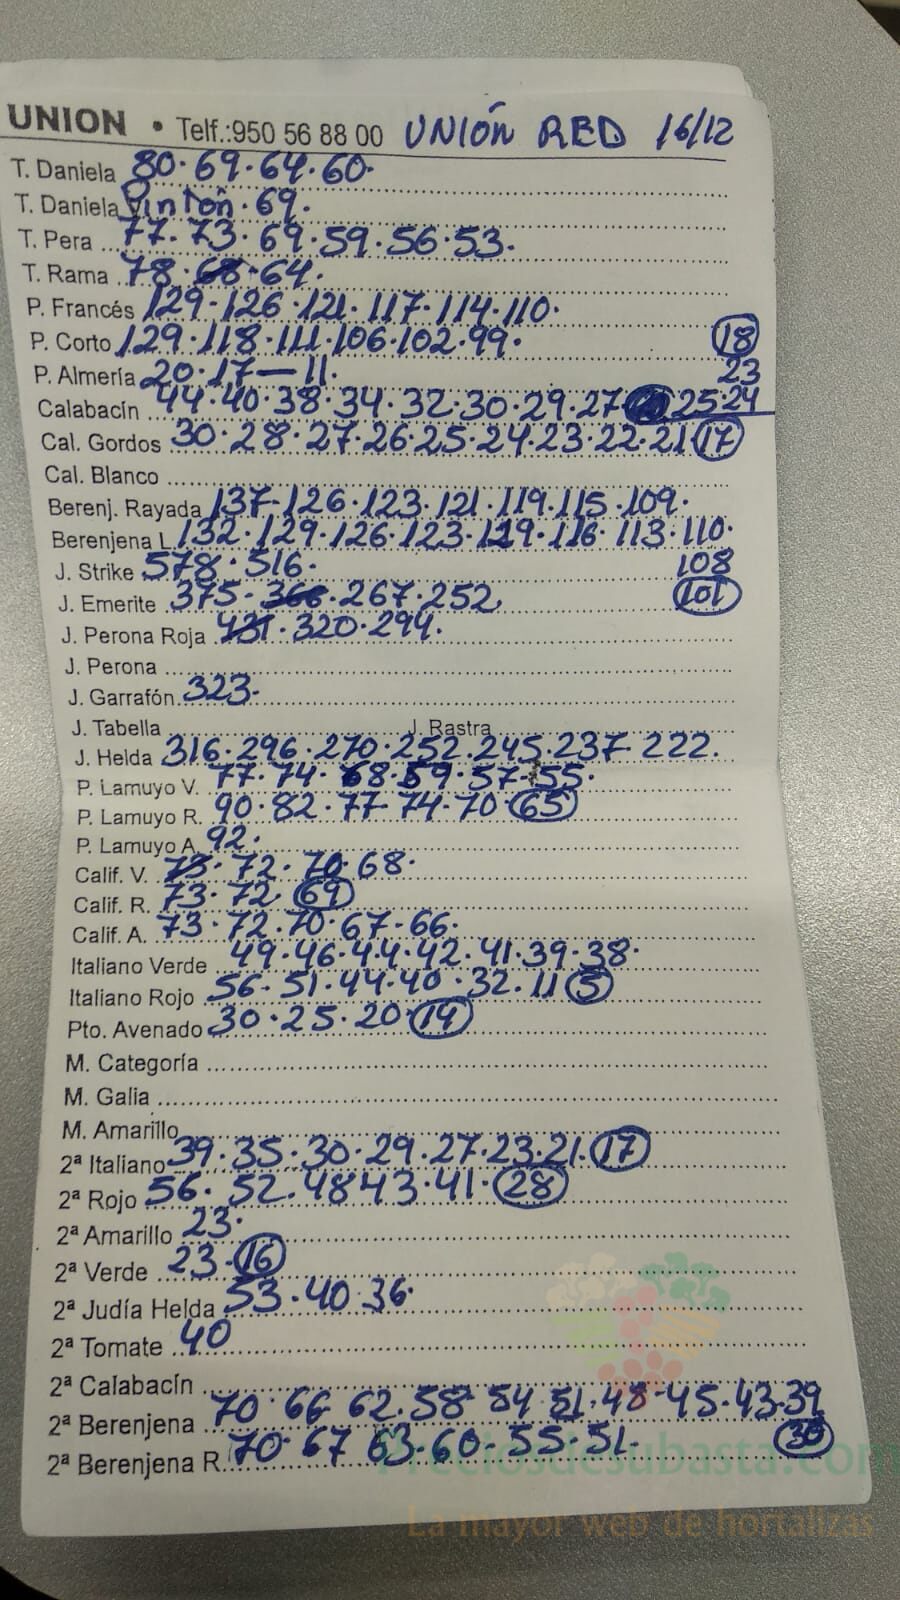 UNION • Telf.:950 56 88 00 UNIÓN RED 16/12
T. Daniela 80·69·64·60·
T. Daniela Pintón·69·
T. Pera 77·73·69·59·56·53·
T. Rama 78·68·64·
P. Francés 129-126·121·117·114·110·
P. Corto 129·118·111·106·102·99· 18
P. Almería 20·17—11· 23
Calabacín 44·40·38·34·32·30·29·27 25·24
Cal. Gordos 30·28·27·26·25·24·23·22·21 17
Cal. Blanco
Berenj. Rayada 137-126·123·121·119·115·109·
Berenjena L 132·129·126·123·119·116·113·110·
J. Strike 578·516· 108
J. Emerite 375-366·267·252 101
J. Perona Roja 431·320·294·
J. Perona
J. Garrafón 323-
J. Tabella J. Rastra
J. Helda 316·296·270·252·245·237 222·
P. Lamuyo V. 77·74·68·59·57·55·
P. Lamuyo R. 90·82·77·74·70·65
P. Lamuyo A. 92·
Calif. V. 73·72·70·68·
Calif. R. 73·72·69
Calif. A. 73·72·70·67-66·
Italiano Verde 49·46·44·42·41·39·38·
Italiano Rojo 56·51·44·40·32·11 5
Pto. Avenado 30·25·20·19
M. Categoría
M. Galia
M. Amarillo
2ª Italiano 39·35·30·29·27·23·21·17
2ª Rojo 56·52·48 43·41·28
2ª Amarillo 23·
2ª Verde 23·16
2ª Judía Helda 53·40·36·
2ª Tomate 40
2ª Calabacín
2ª Berenjena 70·66·62·58·54·51·48·45·43·39
2ª Berenjena R. 70·67 63·60·55·51· 30
Preciosdesubasta.com
La mayor web de hortalizas